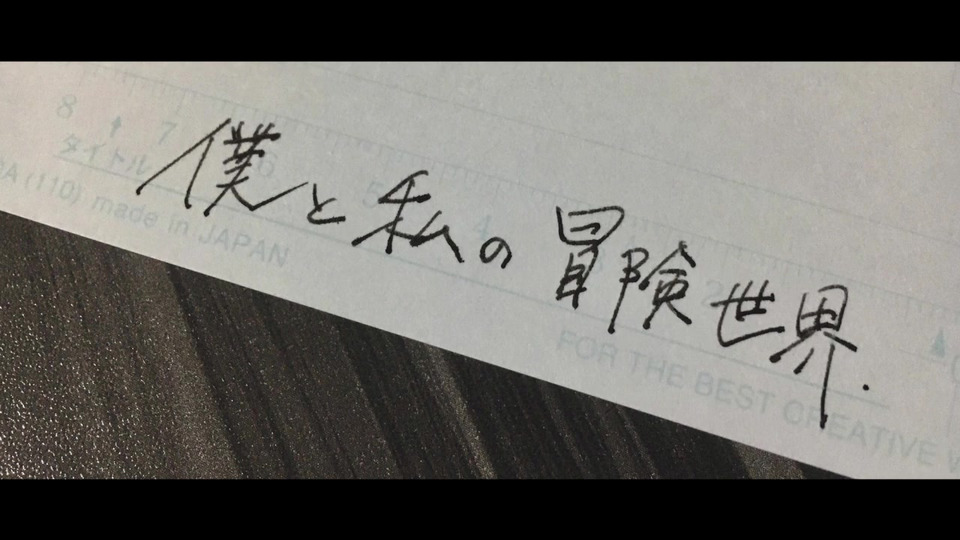 8 7 6 5 4 2
タイトル
僕と私の冒険世界.
(110) made in JAPAN
FOR THE BEST CREATIVE